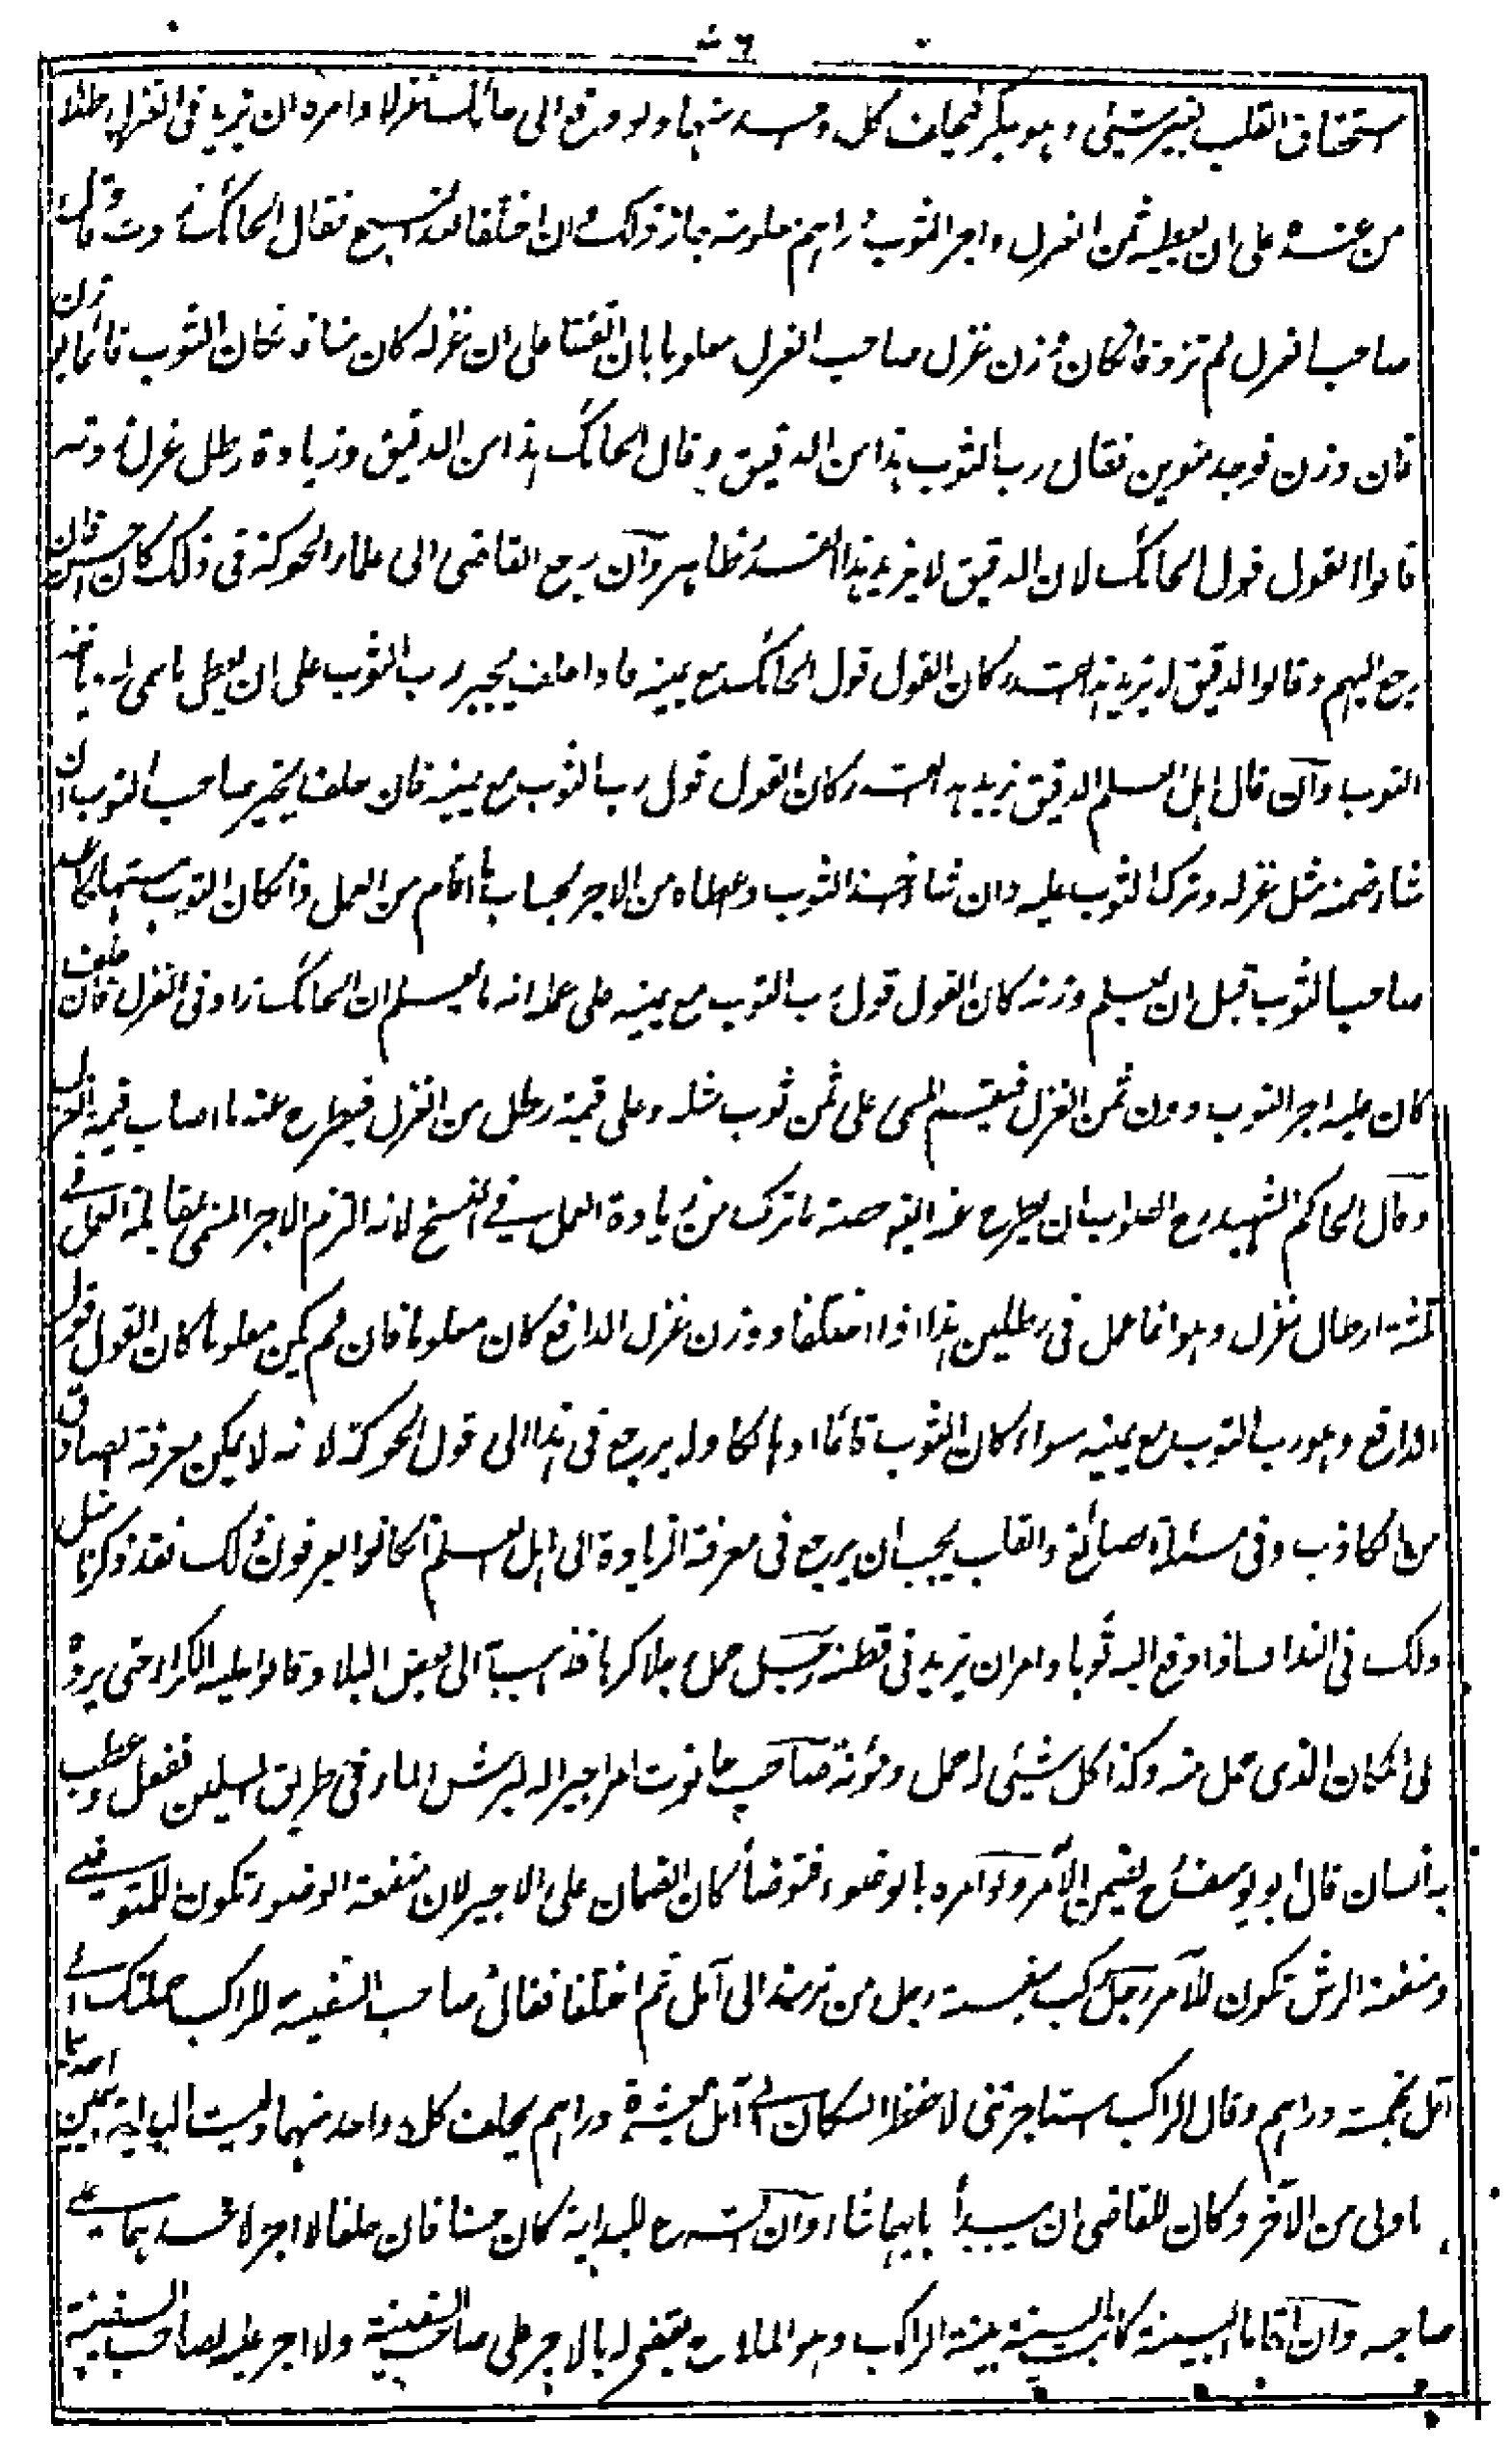 استحقاق القلب بغير شيئ وهو ينكر فيحلف كل واحد منهما ولو دفع الى حائك غزلا وامره ان يزيد فى الغزل رطلا
من عنده على ان يعطيه ثمن الغزل واجر الثوب دراهم معلومة جاز ذلك وان اختلفا بعد النسج فقال الحائك زدت وقال
صاحب الغزل لم تزد فان كان وزن غزل صاحب الغزل معلوما بان اتفقا على ان غزله كان منا فان كان الثوب قائما يوزن
فان وزن فوجد منوين فقال رب الثوب هذا من الدقيق وقال الحائك هذا من الدقيق وزيادة رطل غزل زدته
قالوا القول قول الحائك لان الدقيق لا يزيد هذا القدر ظاهرا وان رجع القاضى الى علماء الحوكة فى ذلك كان احسن فان
رجع اليهم وقالوا الدقيق لا يزيد هذا القدر كان القول قول الحائك مع يمينه فاذا حلف يجبر رب الثوب على ان يعطى ما سمى له
الثوب وان قال اهل العلم الدقيق يزيد هذا القدر كان القول قول رب الثوب مع يمينه فان حلف يخير صاحب الثوب ان
شاء ضمنه مثل غزله وترك الثوب عليه وان شاء اخذ الثوب واعطاه من الاجر بحساب ما اقام من العمل وان كان الثوب مستهلكا
صاحب الثوب قبل ان يعلم وزنه كان القول قول رب الثوب مع يمينه على علمه انه ما يعلم ان الحائك زاد فى الغزل فان حلف
كان عليه اجر الثوب دون ثمن الغزل فيقسم المسمى على ثمن ثوب مثله وعلى قيمة رطل من الغزل فيطرح عنه ما اصاب قيمة الغزل
وقال الحاكم الشهيد رح الصواب ان يطرح عنه ايضا حصة ما ترك من زيادة العمل فى النسخ لانه التزم الاجر المسمى بمقابلة العمل فى
ثلثة ارطال غزل وهو انما عمل فى رطلين هذا اذا اختلفا ووزن غزل الدافع كان معلوما فان لم يكن معلوما كان القول قول
الدافع وهو رب الثوب مع يمينه سواء كان الثوب قائما او هالكا ولا يرجع فى هذا الى قول الحوكة لانه لا يمكن معرفة الصادق
من الكاذب وفى مسئلة الصائغ والقلب يجب ان يرجع فى معرفة الزيادة الى اهل العلم ان كانوا يعرفون ذلك فقد ذكرنا مثل
ذلك فى النداف اذا دفع اليه ثوبا وامر ان يزيد فى قطنه رجل حمل رجلا كرها فذهب به الى بعض البلاد قالوا عليه الكراء حتى يرده
الى المكان الذى حمل منه وكذا كل شيئ له حمل ومؤنة صاحب حانوت امر اجيرا له ليرش الماء فى طريق المسلمين ففعل وعطب
به انسان قال ابو يوسف رح يضمن الآمر ولو امره بالوضوء فتوضأ كان الضمان على الاجير لان منفعة الوضوء تكون للمتوضى
ومنفعة الرش تكون للآمر رجل ركب سفينة رجل من ترمذ الى آمل ثم اختلفا فقال صاحب السفينة للراكب حملتك الى
آمل بخمسة دراهم وقال الراكب استاجرتنى لاحفظ السكان الى آمل بعشرة دراهم يحلف كل واحد منهما وليست البداية بيمين احدهما
باولى من الآخر وكان للقاضى ان يبدأ بايهما شاء وان اقرع للبداية كان حسنا فان حلفا لا اجر لاحدهما على
صاحبه وان اقاما البينة كانت البينة بينة الراكب وهو الملاح يقضى له بالاجر على صاحب السفينة ولا اجر عليه لصاحب السفينة